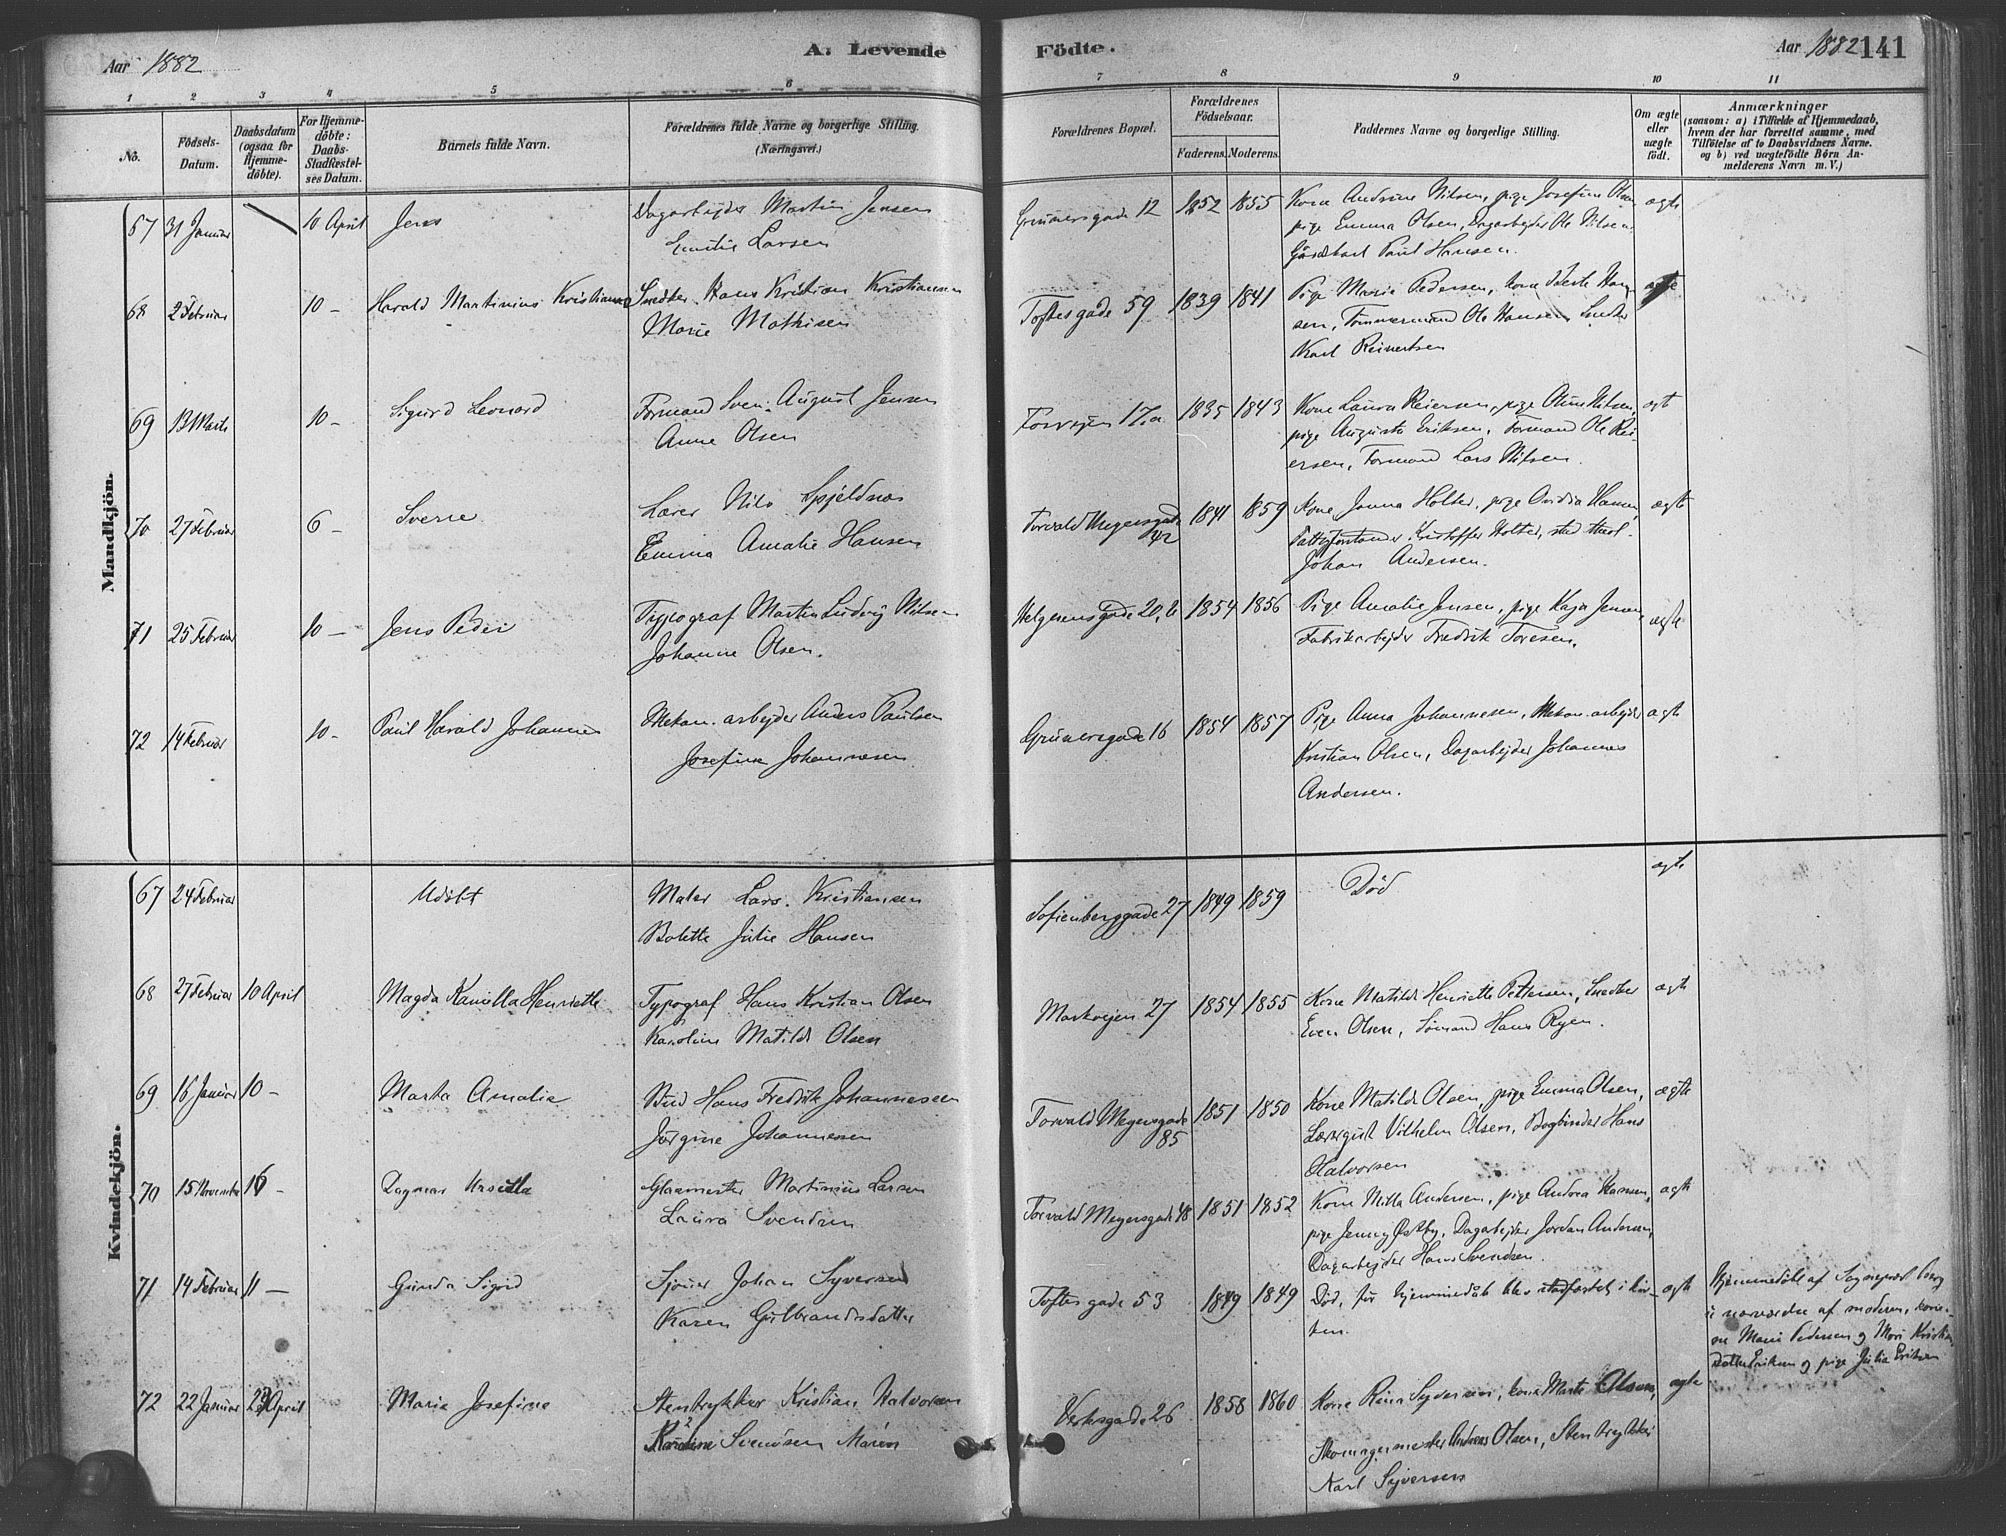 Aar 1882
A. Levende
Födte.
Aar 1882 141
1 2 3 4 5 6 7 8 9 10 11
No.
Födsels-
Datum.
Daabsdatum
(ogsaa for
Hjemme-
döbte).
For Hjemme-
döbte:
Daabs-
Stadfæstel-
ses Datum.
Barnets fulde Navn.
Forældrenes fulde Navne og borgerlige Stilling.
(Næringsvei.)
Forældrenes Bopæl.
Forældrenes
Födselsaar.
Faderens. Moderens.
Faddernes Navne og borgerlige Stilling.
Om ægte
eller
uægte
födt.
Anmærkninger
(saasom: a) i Tilfælde af Hjemmedaab,
hvem der har forrettet samme, med
Tilföielse af to Daabsvidners Navne.
og b) ved uægtefödte Börn An-
melderens Navn m. V.)
Mandkjön.
67 31 Januar 10 April Jens
Dagarbejder Martin Jensen
Emilie Larsen
Grünersgade 12 1852 1855
Kone Andrine Nilsen, pige Josefine Olsen
pige Emma Olsen, Dagarbejder Ole Nilsen,
Gårdskarl Paul Hansen.
ægte
68 2 Februar 10 - Harald Martinius Kristiansen
Snedker Hans Kristian Kristiansen
Marie Mathisen
Toftesgade 59 1839 1841
Pige Marie Pedersen, kone Han-
sen, Tømmermand Ole Hansen, Snedker
Karl Reinertsen
ægte
69 13 Marts 10 - Sigurd Leonard
Formand Sven August Jensen
Anne Olsen
Fosvejen 17a 1835 1843
Kone Laura Reiersen, pige Olava Nilsen,
pige Augusta Eriksen, Formand Ole Rei-
ersen, Formand Lars Nilsen.
ægt
70 27 Februar 6 - Sverre
Lærer Nils Spjeldnæs
Emma Amalie Hansen
Torvald Meyersgade
42 1841 1859
Kone Janna Holter, pige Ovidia Hansen
Kristoffer Holter, stud. theol.
Johan Andersen.
ægte
71 25 Februar 10 - Jens Peder
Typograf Martin Ludvig Nilsen
Johanne Olsen.
Helgesensgade 20, b 1854 1856
Pige Amalie Jensen, pige Kaja Jensen,
Fabrikarbejder Fredrik Toresen.
ægte
72 14 Februar 10 - Paul Harald Johannes
Mekan. arbejder Anders Paulsen
Josefine Johannesen
Grünersgade 16 1854 1857
Pige Anna Johannesen, Mekan. arbejder
Kristian Olsen, Dagarbejder Johannes
Andersen.
ægte
Kvindekjön.
67 24 Februar Udöbt
Maler Lars Kristiansen
Bolette Julie Hansen
Sofienberggade 27 1849 1859
Död
ægte
68 27 Februar 10 April Magda Kamilla Henriette
Typograf Hans Kristian Olsen
Karoline Matilde Olsen
Markvejen 27 1854 1855
Kone Matilde Henriette Pettersen, Snedker
Even Olsen, Sömand Hans Ryen.
ægte
69 16 Januar 10 - Marta Amalie
Bud Hans Fredrik Johannesen
Jörgine Johannessen
Torvald Meyersgade
85 1851 1850
Kone Matilde Olsen, pige Emma Olsen,
Lærergut Vilhelm Olsen, Bogbinder Hans
Halvorsen
ægte
70 15 November 16 - Dagmar Ursula
Glasmester Martinius Larsen
Laura Svendsen
Torvald Meyersgade 48 1851 1852
Kone Milla Andersen, pige Andrea Hansen,
pige Jenny Østby, Dagarbejder Jordan Andersen,
Dagarbejder Hans Svendsen.
ægte
71 14 Februar 11 - Gunda Sigrid
Sjouer Johan Syversen
Karen Gulbrandsdatter
Toftesgade 53 1849 1849
Död, för hjemmedåb blev stadfæstet i kir-
ken.
ægte
Hjemmedöbt af Sogneprest Berg
i nærværelse af moderen, kone-
ne Marie Pedersen og Mari Kristian
datter Eriksen og pige Julia Eriksen
72 22 Januar 23 April Marie Josefine
Stentrykker Kristian Halvorsen
Karoline Svendsen Marén
Verksgade 26 1858 1860
Kone Rina Syversen, kone Marte Olsen,
Skomagermester Anders Olsen, Stentrykker
Karl Syversen
ægte